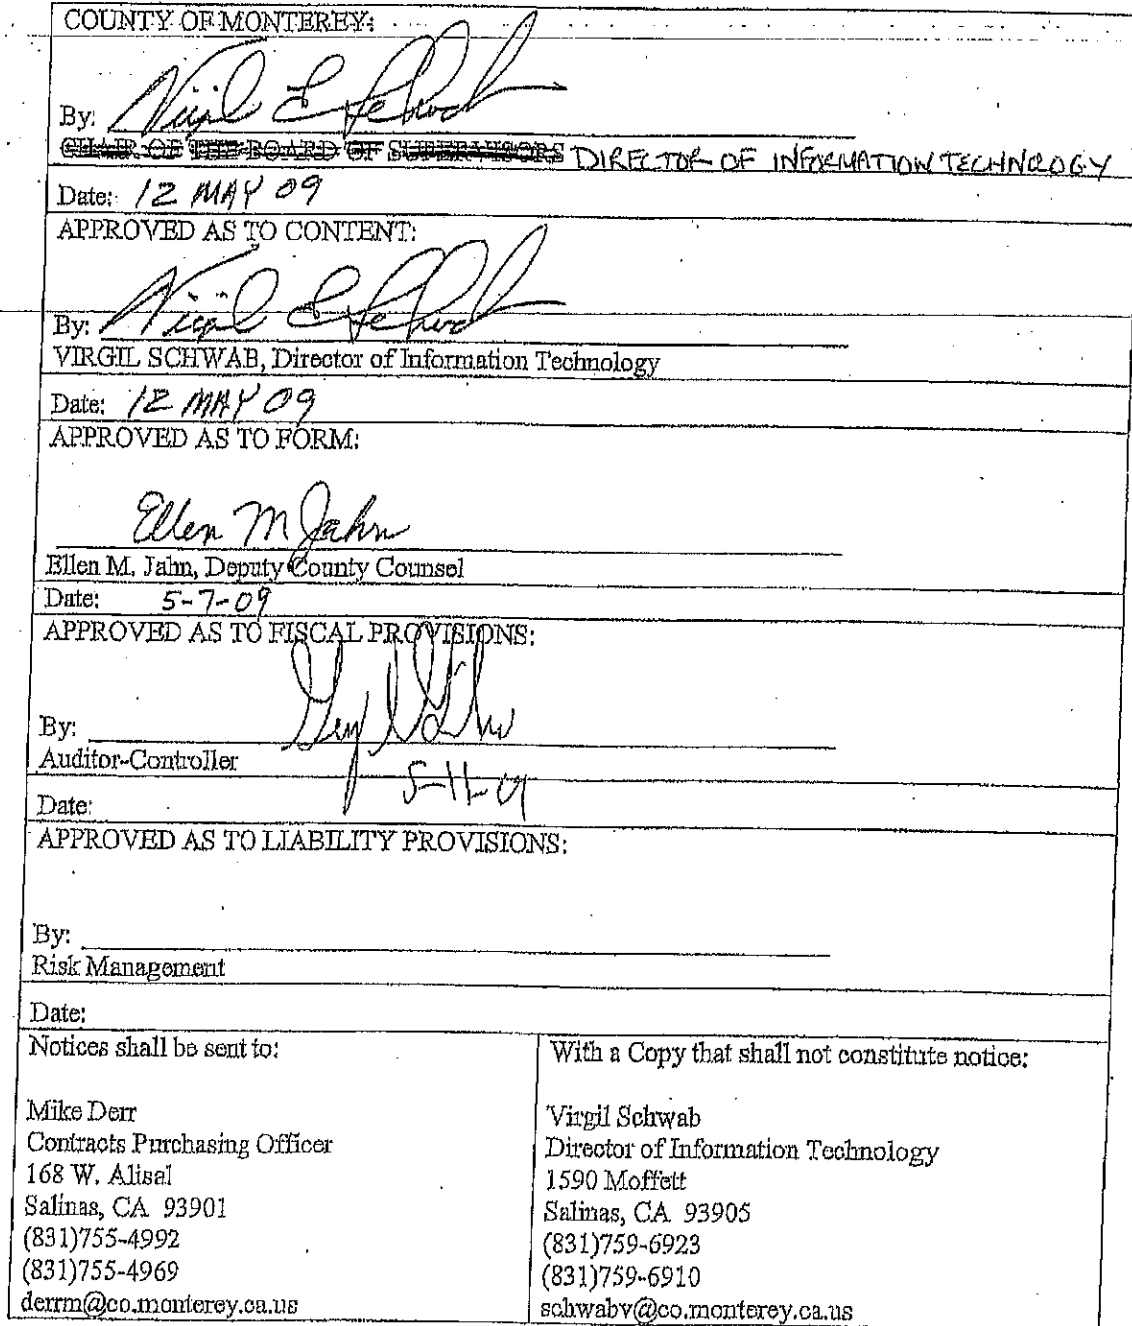 COUNTY OF MONTEREY:
By: Virgil E Schwab
CHAIR OF THE BOARD OF SUPERVISORS DIRECTOR OF INFORMATION TECHNOLOGY
Date: 12 MAY 09
APPROVED AS TO CONTENT:
By: Virgil E Schwab
VIRGIL SCHWAB, Director of Information Technology
Date: 12 MAY 09
APPROVED AS TO FORM:
Ellen M Jahn
Ellen M. Jahn, Deputy County Counsel
Date: 5-7-09
APPROVED AS TO FISCAL PROVISIONS:
By:
Auditor-Controller
5-11-09
Date:
APPROVED AS TO LIABILITY PROVISIONS:
By:
Risk Management
Date:
Notices shall be sent to:
Mike Derr
Contracts Purchasing Officer
168 W. Alisal
Salinas, CA 93901
(831)755-4992
(831)755-4969
derrm@co.monterey.ca.us
With a Copy that shall not constitute notice:
Virgil Schwab
Director of Information Technology
1590 Moffett
Salinas, CA 93905
(831)759-6923
(831)759-6910
schwabv@co.monterey.ca.us